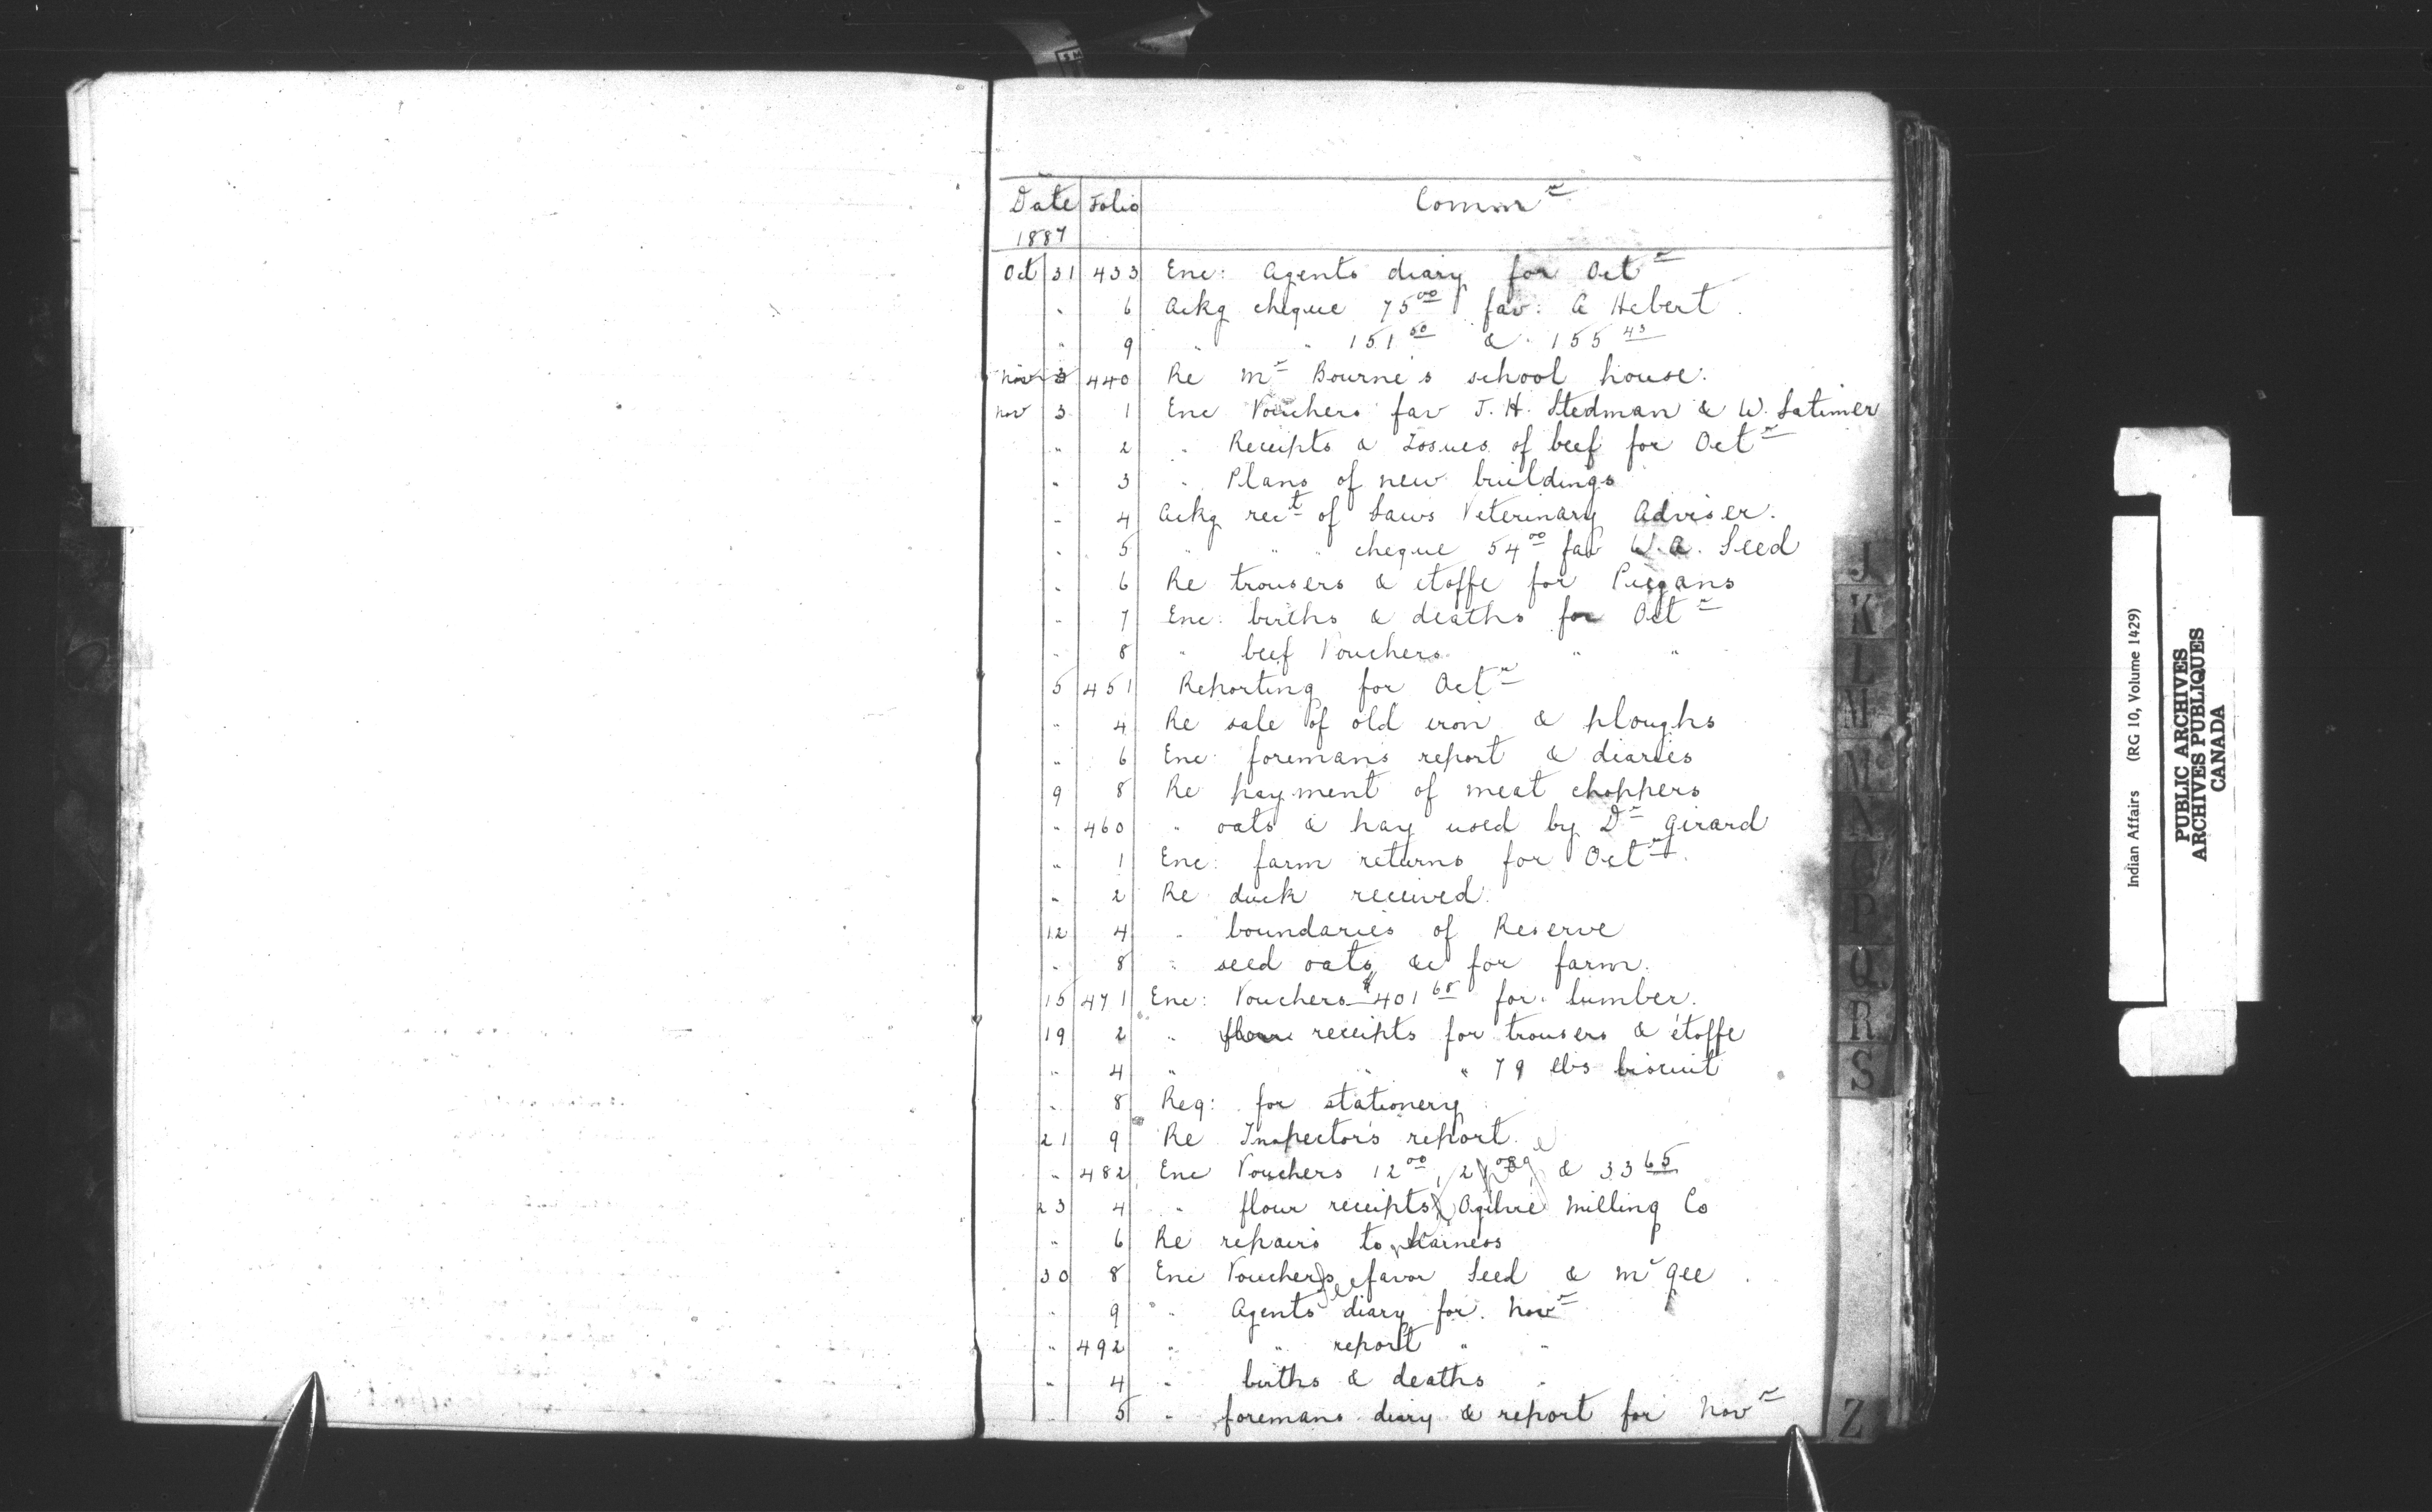 Date Folio Comm^r
1887
Oct 31 433 Enc: Agents diary for Oct^r
" 6 Ackg cheque 75^00 fav: A Hebert
" 9 " " 151^50 & 155^43
Nov 3 440 Re M^r Bourne's school house.
Nov 3 1 Enc Vouchers fav J. H. Stedman & W. Latimer
" 2 " Receipts & Issues of beef for Oct^r
" 3 " Plans of new buildings
" 4 Ackg rec^t of Laws Veterinary Adviser.
" 5 " " " cheque 54^00 fav W. A. Seed
" 6 Re trousers & etoffe for Piegans
" 7 Enc: births & deaths for Oct^r
" 8 " beef Vouchers " "
5 451 Reporting for Oct^r
" 4 Re sale of old iron & ploughs
" 6 Enc: foreman's report & diaries
9 8 Re payment of meat choppers
" 460 " oats & hay used by D^r Girard
" 1 Enc: farm returns for Oct^r.
" 2 Re duck received.
12 4 " boundaries of Reserve
" 8 " seed oats, &c for farm.
15 471 Enc: Vouchers $401^68 for lumber.
19 2 " flour receipts for trousers & étoffe
" 4 " " " 79 lbs biscuit
" 8 Req: for stationery
21 9 Re Inspector's report.
" 482 Enc Vouchers 12^00, & 33^65
23 4 " flour receipts Ogilvie Milling Co
" 6 Re repairs to Harness
30 8 Enc Vouchers favor Seed & M^cGee
" 9 " Agents diary for Nov^r
" 492 " " report " "
" 4 " births & deaths "
" 5 " foremans diary & report for Nov^r
J
K
L
M
M^c
N
O
P
Q
R
S
Z
Indian Affairs (RG 10, Volume 1429)
PUBLIC ARCHIVES
ARCHIVES PUBLIQUES
CANADA